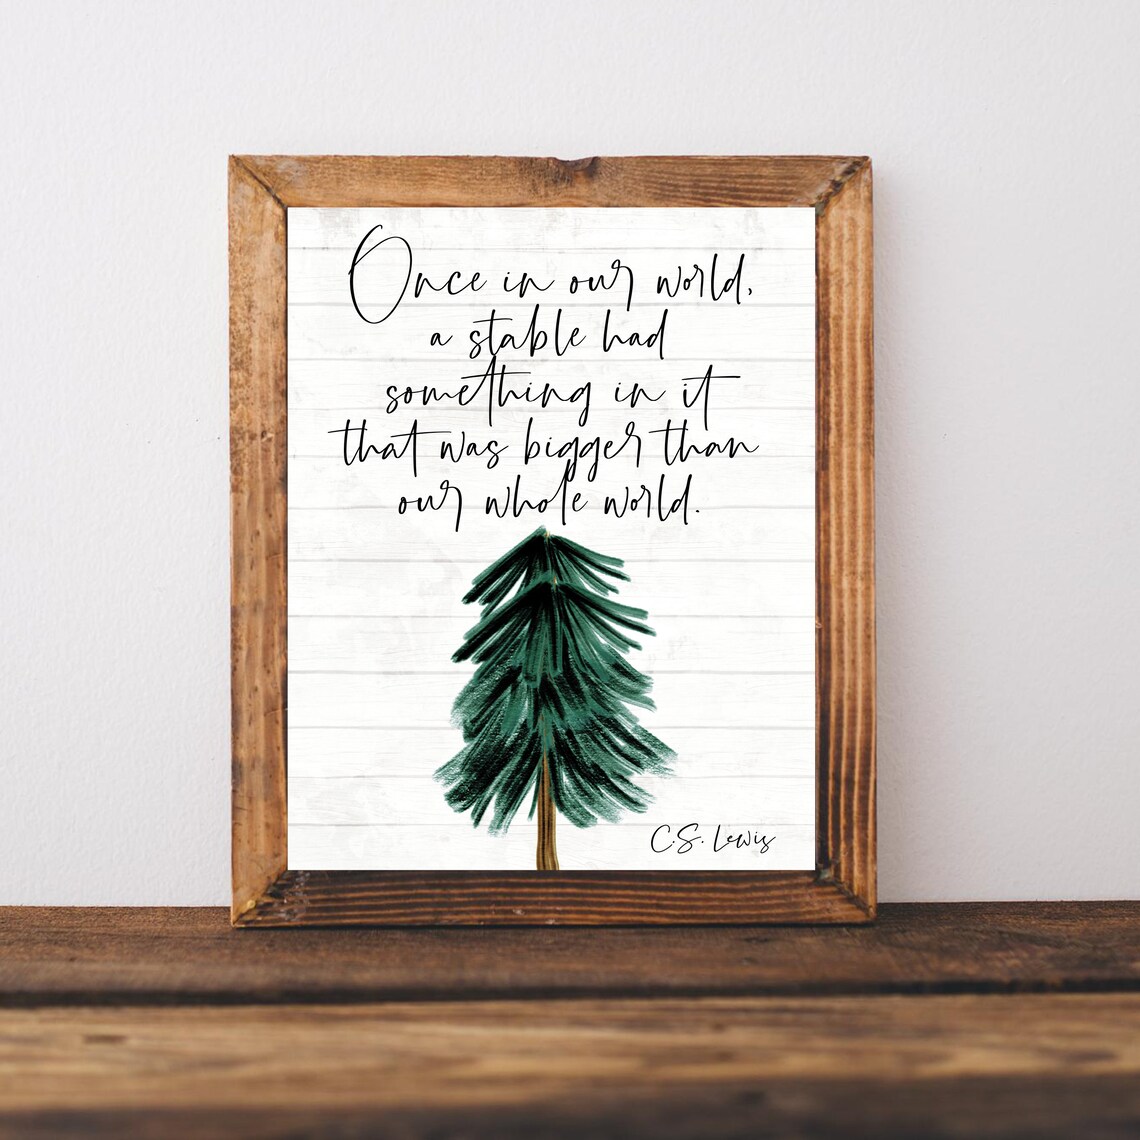 Once in our world,
a stable had
something in it
that was bigger than
our whole world.
C.S. Lewis